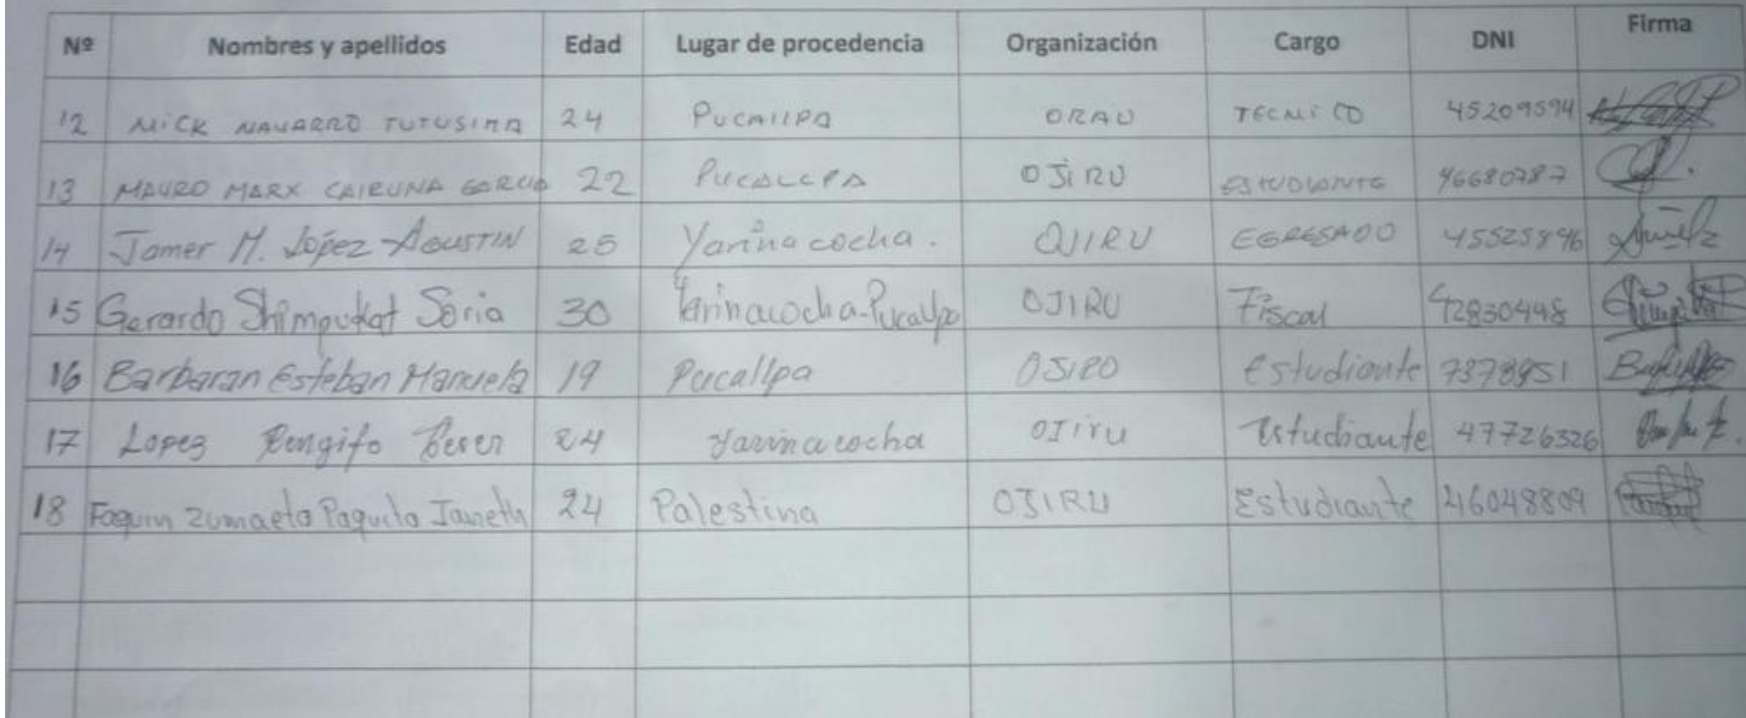 Nº Nombres y apellidos Edad Lugar de procedencia Organización Cargo DNI Firma
12 MICK NAVARRO TUTUSIMA 24 PUCAllPA ORAU TECNICO 45209594
13 MAURO MARX CAIRUNA GARCIA 22 PUCALLPA OJiRU ESTUDIANTE 46680787
14 Jamer M. López AGUSTIN 25 Yarinacocha. OJIRU EGRESADO 45525896
15 Gerardo Shimpukat Soria 30 Yarinacocha-Pucallpa OJIRU Fiscal 42830498
16 Barbaran Esteban Manuela 19 Pucallpa OJIRO Estudiante 7378951
17 Lopez Rengifo Beser 24 Yarinacocha OJiru Estudiante 47726326
18 Faquin Zumaeta Paquita Janeth 24 Palestina OJIRU Estudiante 46048809